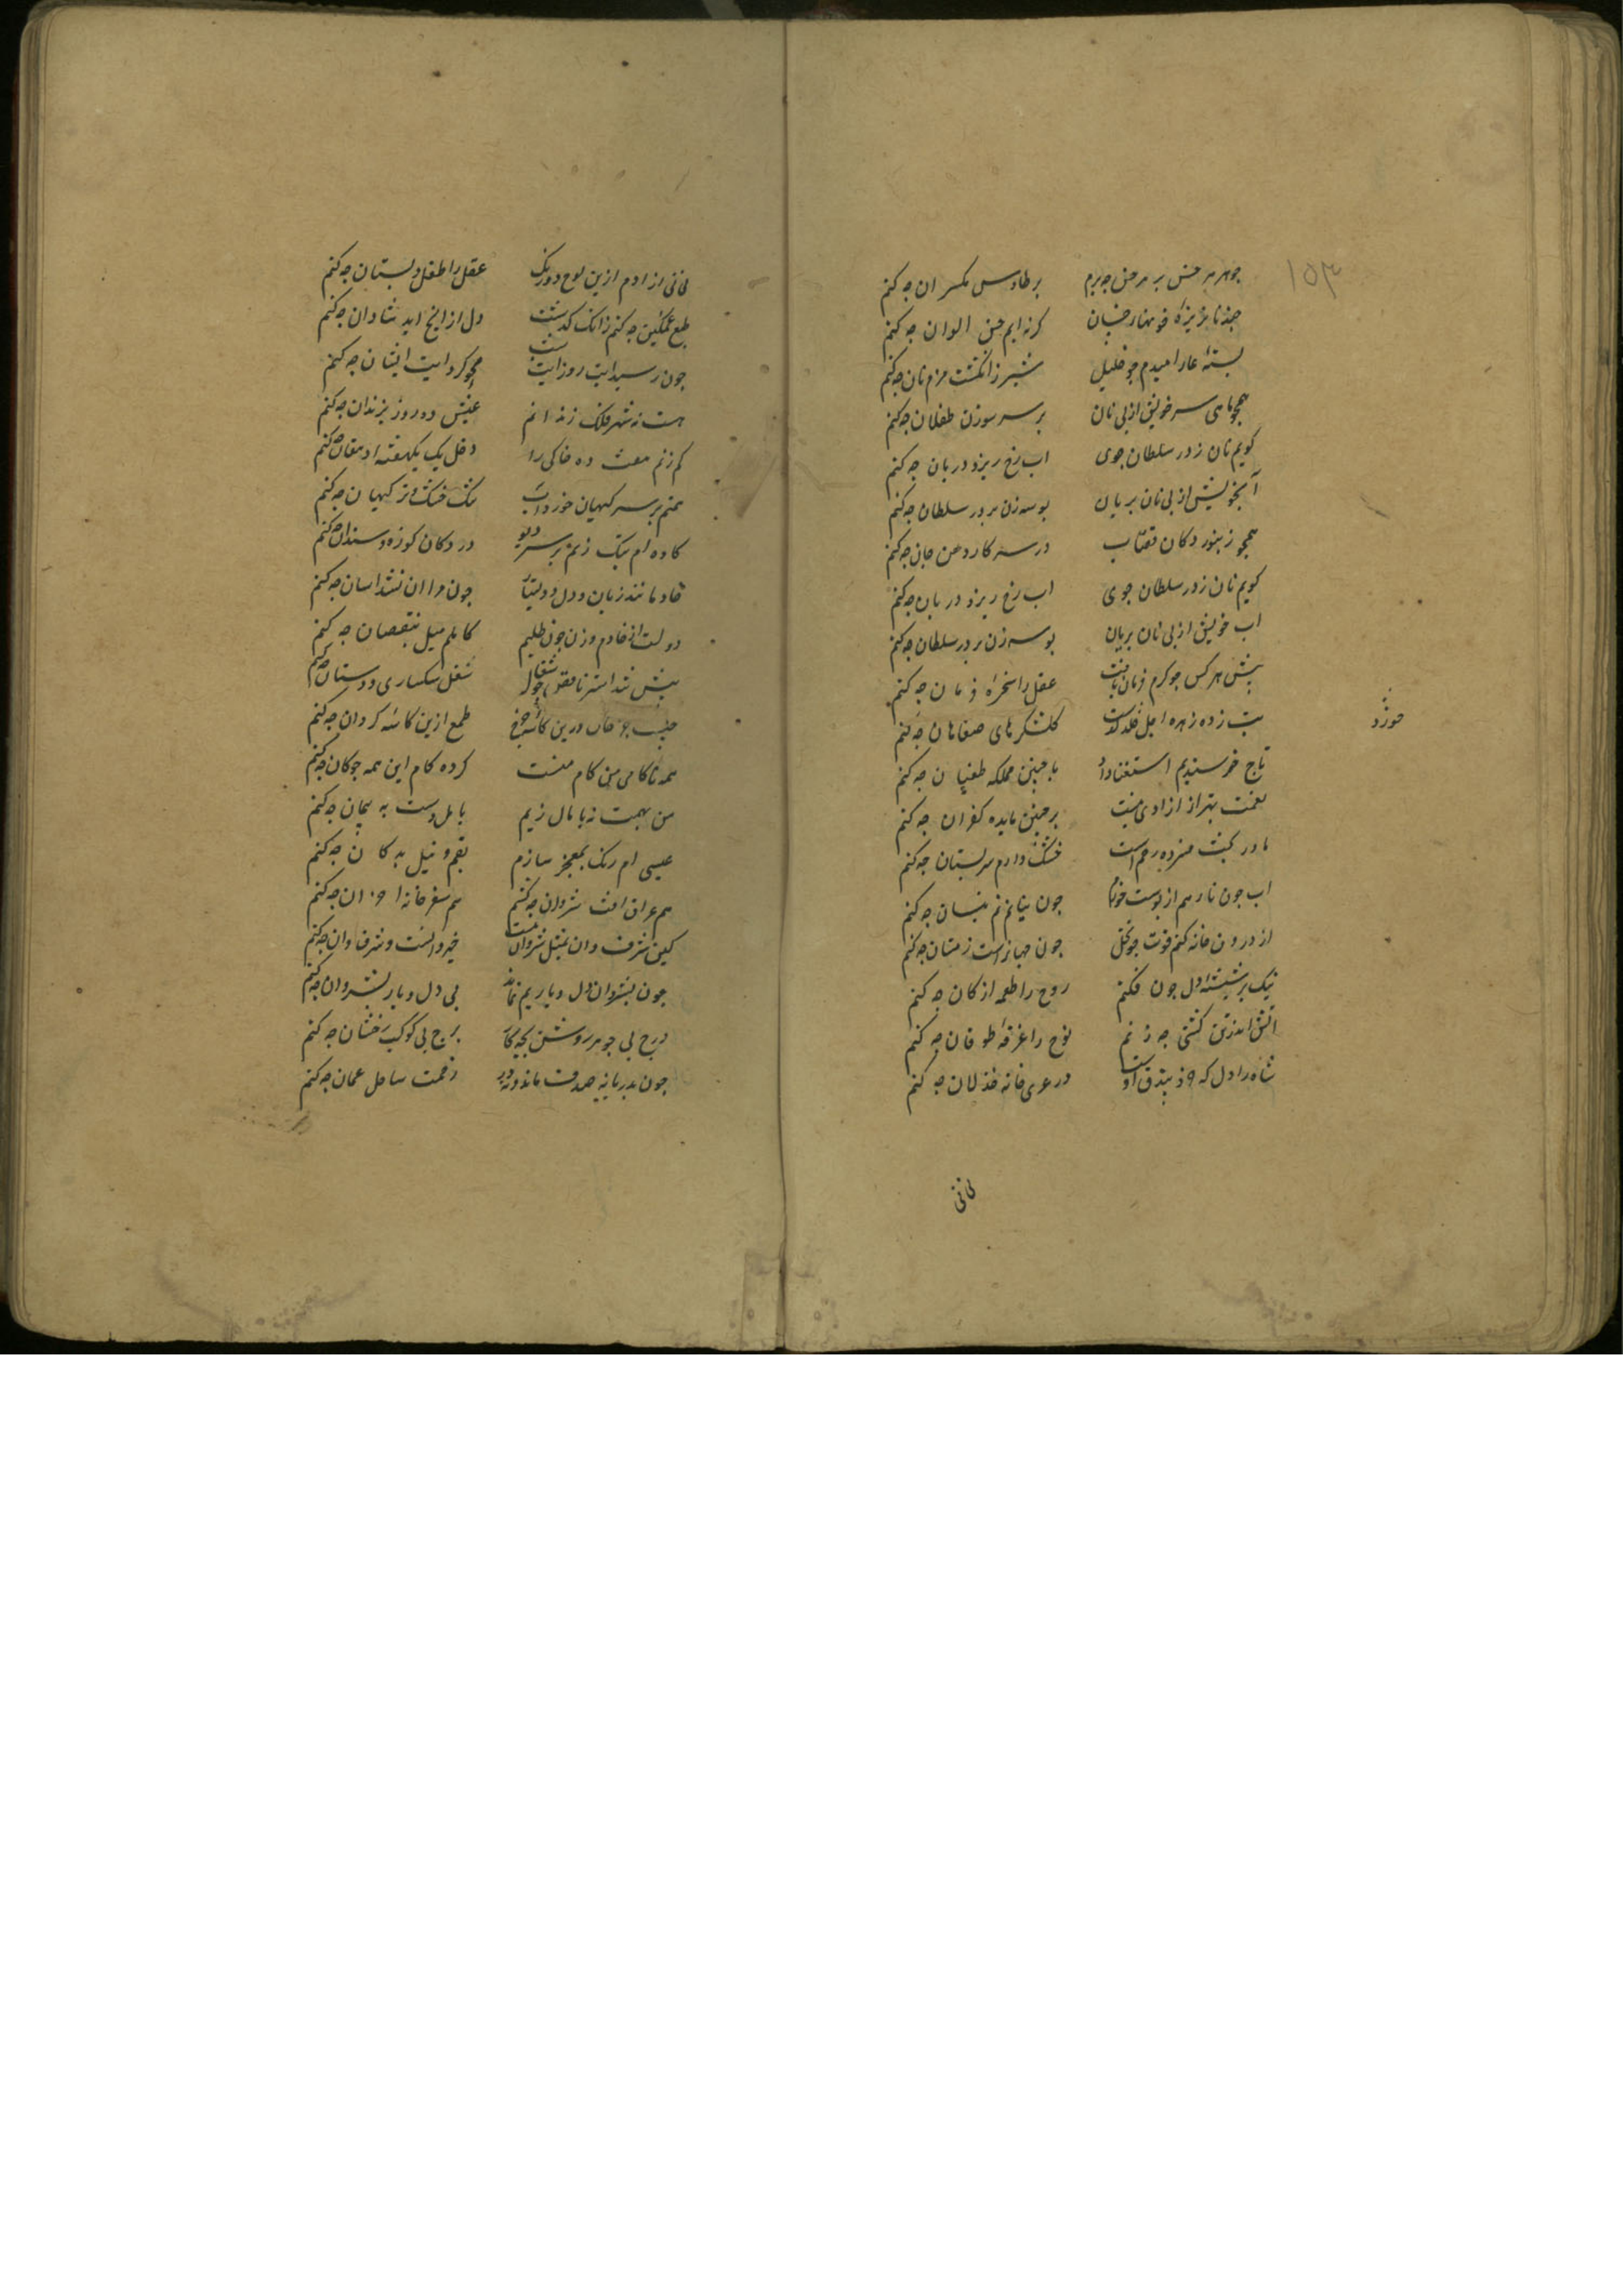 ١٥٣
جوهر هر حس بر هر حس چه برم بر طاوس مکسر ان چه کنم
چند نانریزه خوانها کرنه ایم الوان چه کنم
بسته غار امیدم چو خلیل شیر ز انکشت مزم نان چه کنم
همچو ماهی سر خویش از پی نان بر سر سوزن طفلان چه کنم
کویم نان ز در سلطان جوی اب رخ ریزد در بان چه کنم
آبخویش از پی نان بریان بوسه زن بر در سلطان چه کنم
همچو زنبور دکان قصاب در سر کار دهن جان چه کنم
کویم نان ز در سلطان جوی اب رخ ریزد در بان چه کنم
اب خویش از پی نان بریان بوسه زن بر در سلطان چه کنم
پیش هر کس چو کرم فرمان یافت عقل را سخره فرمان چه کنم
زده زهره اجل کلشکرهای صفاهان چه کنم
خورد
تاج خرسندیم استغنا داد با چنین مملکه طغیان چه کنم
نعمت بهتر از ازادی نیست بر چنین مایده کفران چه کنم
مادر بخت فسرده رحم است خشک دارم سر پستان چه کنم
اب چون نار هم از پوست خورم چون نیابم نم نیسان چه کنم
از درون خانه کنم قوت چو نحل چون جهاز است زمستان چه کنم
نیک بر شیشه دل چون فکنم روح را طعمه ارکان چه کنم
اتش اندر تن کشتی چه زنم نوح را غرقه طوفان چه کنم
شاه را دل که در عری خانه خذلان چه کنم
نی نی
نی نی از ادم ازین لوح دورنک عقل را طفل دبستان چه کنم
طبع غمکین چه کنم زانک کذشت دل از انج اید شادان چه کنم
چون رسید ایت روز ایت شب محو کرد ایت ایشان چه کنم
هست نه شهر فلک زندانم عیش ده روز بزندان چه کنم
کم زنم هفت ده خاکی را دخل یک یکهفته دهقان چه کنم
همتم بر سر کیهان خورد اب سک خشک و تر کیهان چه کنم
کاوه ام پتک زنم بر سر دیو در دکان کوره و سندان چه کنم
قادمانند زبان و دل و دولت چون مرا ان نشد اسان چه کنم
دولت از خادم و زن چون طلبم کاملم میل بنقصان چه کنم
پیش تند استر ناقص چو شغال شغل سکساری و دستان چه کنم
نیست چون درین کاسه چرخ طمع ازین کاسه کردان چه کنم
همه ناکامی من کام منست کرده کام این همه چو کان چه کنم
من بهمت نه بامال زیم با مل دست به پیمان چه کنم
عیسی ام رنک بمعجز سازم بقم و نیل به دکان چه کنم
هم عراق افت شروان چه کشم هم سفر خانه احزان چه کنم
کین شرف وان بمثل شروانست خیروانست و شرفوان چه کنم
چون بشروان دل و یاریم نماند بی دل و یار بشروان چه کنم
درج بی جوهر روشن بچه کار برج بی کوکب رخشان چه کنم
چون بدریا نه صدف ماند و نه در زحمت ساحل عمان چه کنم